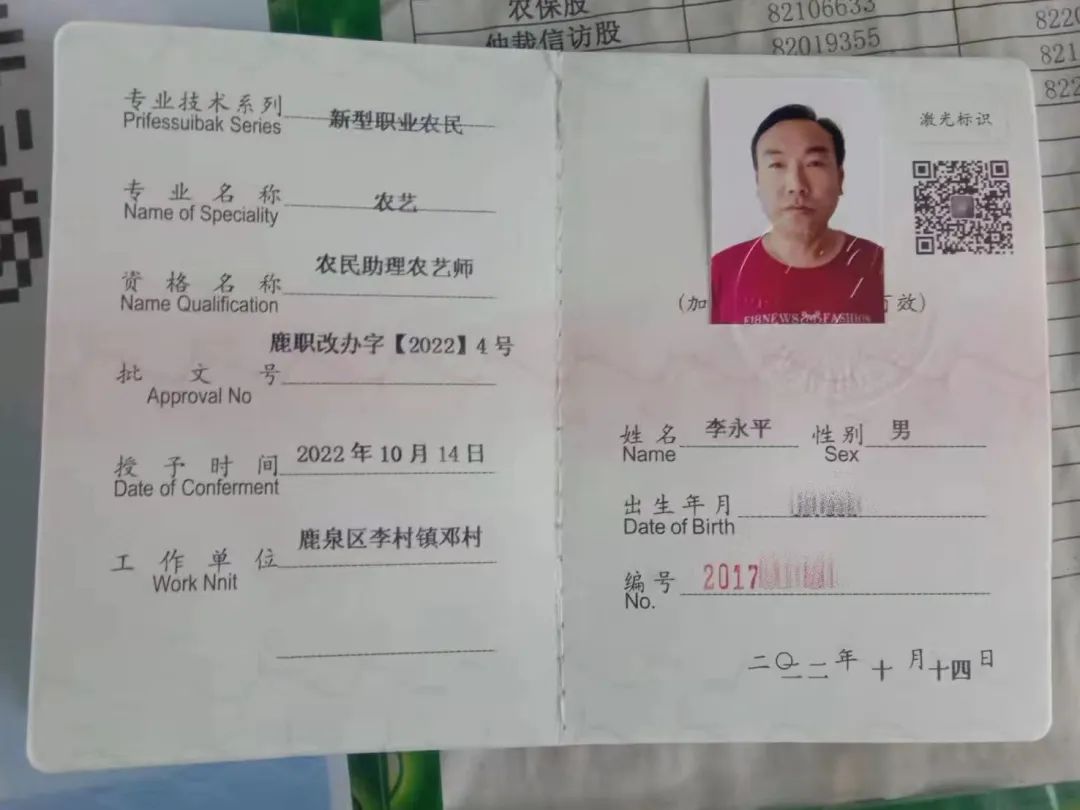 农保股
82106633
仲裁信访股
82019355
专业技术系列 新型职业农民
Prifessuibak Series
专业名称 农艺
Name of Speciality
资格名称 农民助理农艺师
Name Qualification
批文号 鹿职改办字【2022】4号
Approval No
授予时间 2022年10月14日
Date of Conferment
工作单位 鹿泉区李村镇邓村
Work Nnit
激光标识
(加
效)
姓名 李永平 性别 男
Name Sex
出生年月
Date of Birth
编号 2017
No.
二〇二二年十月十四日